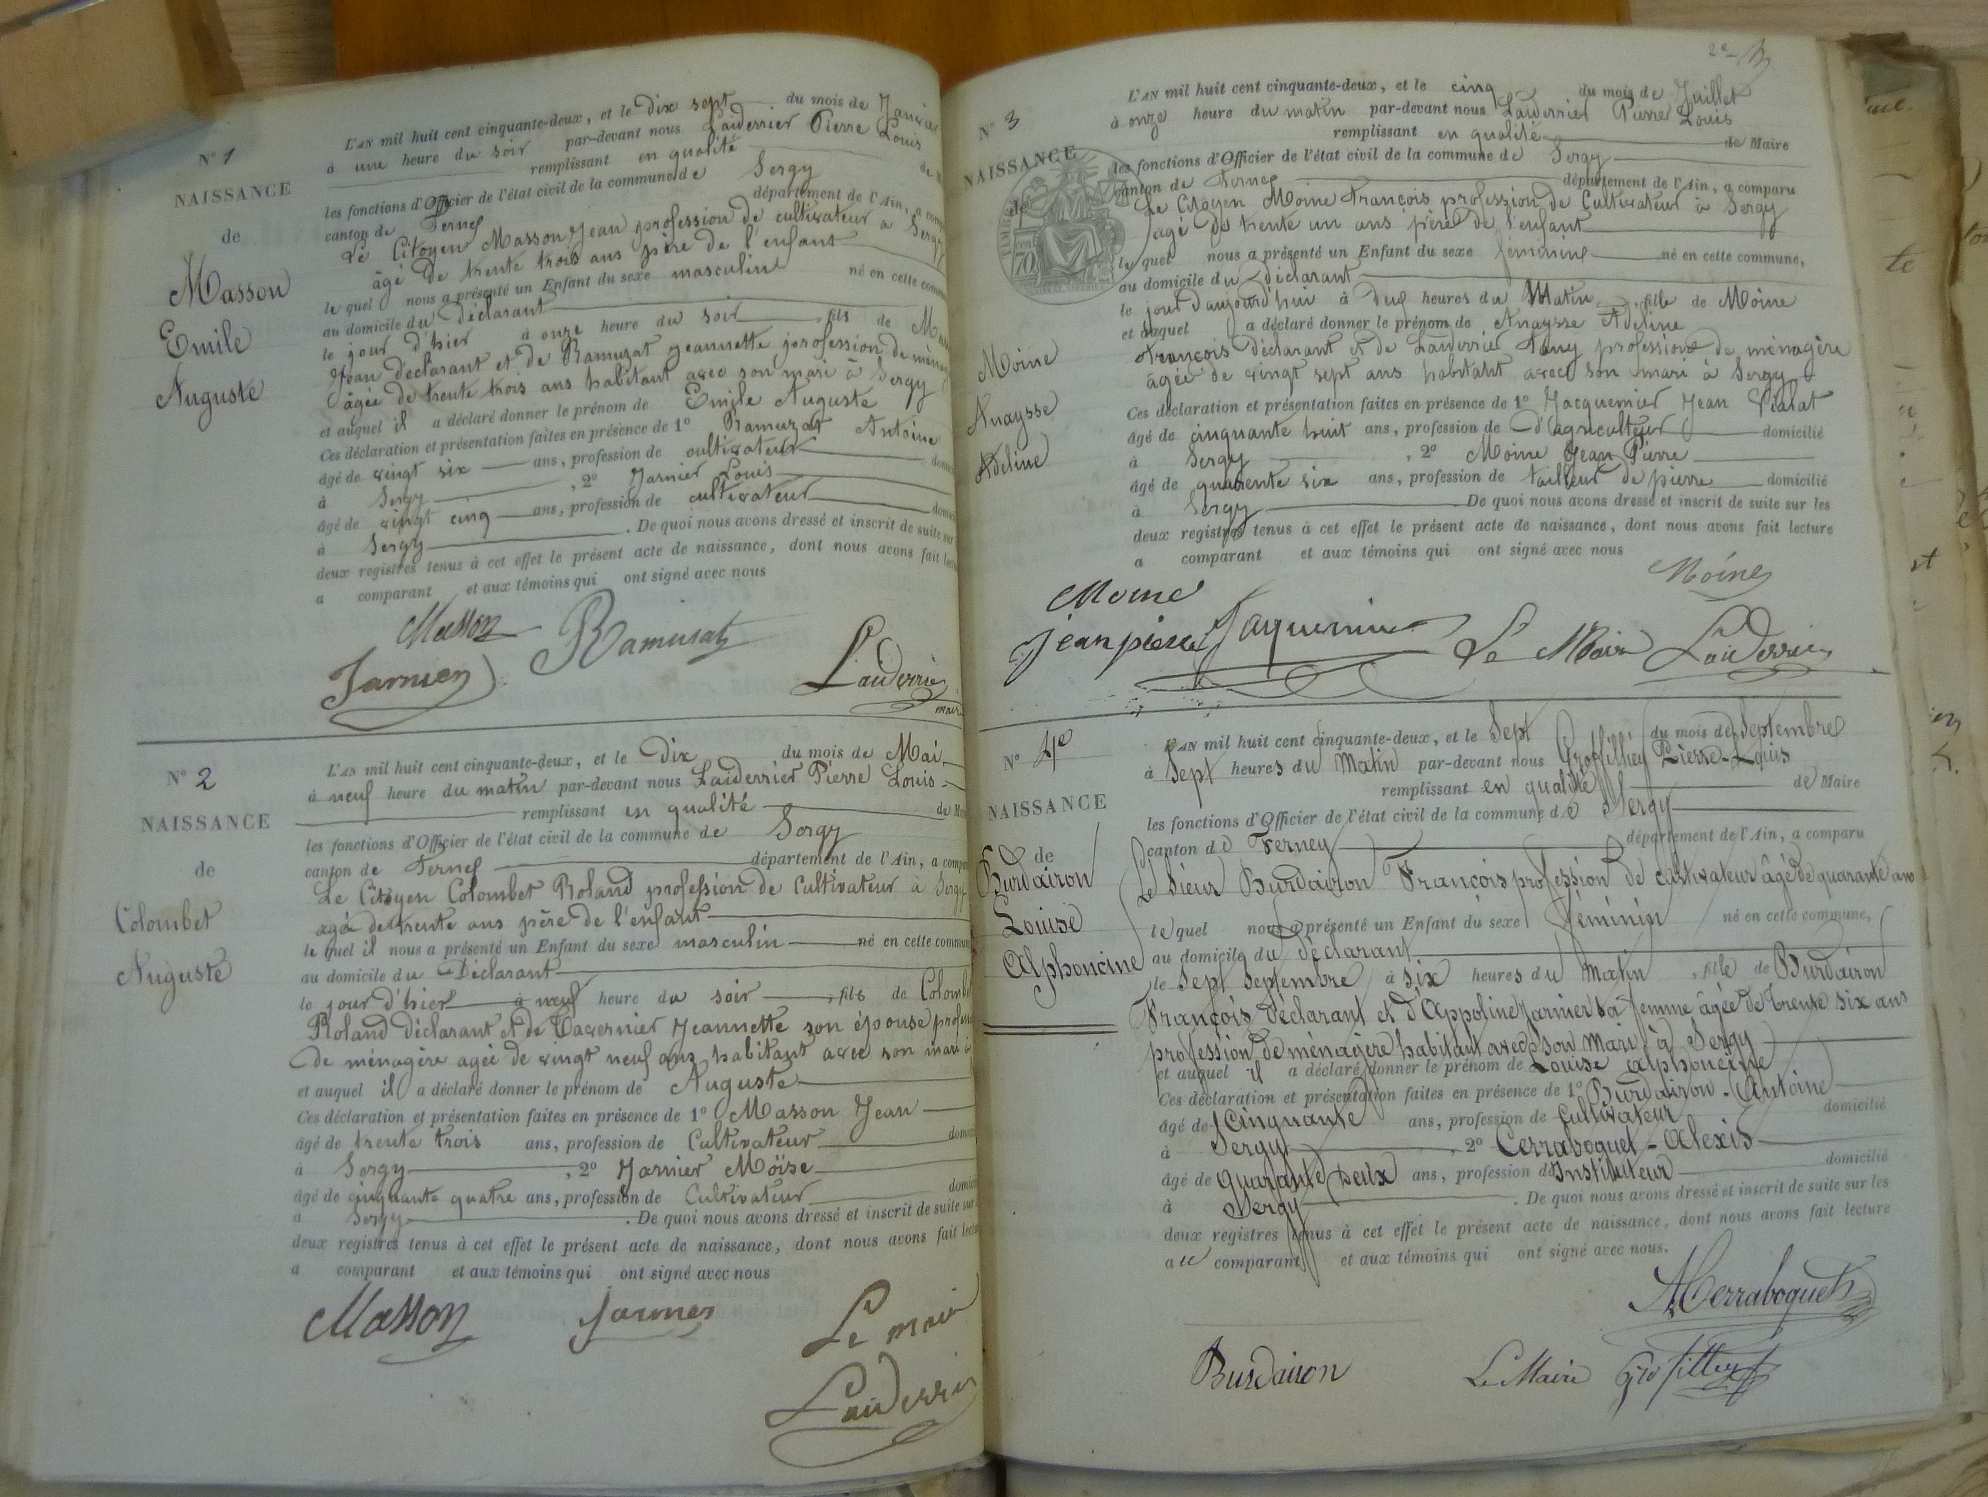 N° 1
NAISSANCE
de
Masson
Emile
Auguste
L'AN mil huit cent cinquante-deux, et le Dix sept du mois de Janvier
à une heure du soir par-devant nous Lauderrier Pierre Louis
remplissant en qualité de
les fonctions d'Officier de l'état civil de la commune de Sergy
canton de Fernex département de l'Ain, a
Le Citoyen Masson Jean profession de cultivateur a Sergy
âgé de trente trois ans père de l'enfant
le quel nous a présenté un Enfant du sexe masculin né en cette
au domicile du déclarant
le jour d'hier à onze heure du soir, fils de
Jean déclarant et de Ramuzat Jeannette profession de
âgée de trente trois ans habitant avec son mari à Sergy
et auquel il a déclaré donner le prénom de Emile Auguste
Ces déclaration et présentation faites en présence de 1° Ramuzat Antoine
âgé de vingt six ans, profession de cultivateur
à Sergy, 2° Jarnier Louis
âgé de vingt cinq ans, profession de cultivateur
à Sergy. De quoi nous avons dressé et inscrit de suite sur
deux registres tenus à cet effet le présent acte de naissance, dont nous avons fait
a comparant et aux témoins qui ont signé avec nous
Masson Ramusat
Jarnier Lauderrier
maire
N° 2
NAISSANCE
de
Colombet
Auguste
L'AN mil huit cent cinquante-deux, et le Dix du mois de Mai
à neuf heure du matin par-devant nous Lauderrier Pierre Louis
remplissant en qualité de
les fonctions d'Officier de l'état civil de la commune de Sergy
canton de Fernex département de l'Ain, a
Le Citoyen Colombet Roland profession de Cultivateur à Sergy
agé de trente ans père de l'enfant
le quel il nous a présenté un Enfant du sexe masculin né en cette
au domicile du Déclarant
le jour d'hier à neuf heure du soir, fils de
Roland déclarant et de Tavernier Jeannette son épouse
De ménagère agée de vingt neuf ans habitant avec son mari à
et auquel il a déclaré donner le prénom de Auguste
Ces déclaration et présentation faites en présence de 1° Masson Jean
âgé de trente trois ans, profession de Cultivateur
à Sergy, 2° Jarnier Moïse
âgé de cinquante quatre ans, profession de Cultivateur
a Sergy. De quoi nous avons dressé et inscrit de suite sur
deux registres tenus à cet effet le présent acte de naissance, dont nous avons fait
a comparant et aux témoins qui ont signé avec nous
Masson Jarnier Le maire
Lauderrier
N° 3
NAISSANCE
de
Moine
Anaysse
Adeline
L'AN mil huit cent cinquante-deux, et le cinq du mois de Juillet
à onze heure du matin par-devant nous Lauderrier Pierre Louis
remplissant en qualité de Maire
les fonctions d'Officier de l'état civil de la commune de Sergy
canton de Fernex département de l'Ain, a comparu
Le Citoyen Moine François profession de Cultivateur à Sergy
agé de trente un ans père de l'enfant
le quel nous a présenté un Enfant du sexe féminine né en cette commune,
au domicile du déclarant
le jour d'aujourd'hui à deux heures du Matin, fille de Moine
et auquel a déclaré donner le prénom de Anaysse Adeline
François déclarant et de Lauderrier Fany profession de ménagère
âgée de vingt sept ans habitant avec son mari à Sergy
Ces déclaration et présentation faites en présence de 1° Jacquemier Jean
âgé de cinquante huit ans, profession de D'agriculteur domicilié
à Sergy, 2° Moine Jean Pierre
âgé de quarente six ans, profession de tailleur de pierre domicilié
à Sergy De quoi nous avons dressé et inscrit de suite sur les
deux registres tenus à cet effet le présent acte de naissance, dont nous avons fait lecture
a comparant et aux témoins qui ont signé avec nous
Moine
Moine
jean pierre Jaquemier Le Maire Lauderrier
N° 4e
NAISSANCE
de
Burdairon
Louise
Alphoncine
L'AN mil huit cent cinquante-deux, et le Sept du mois de Septembre
à Sept heures du Matin par-devant nous Grosfilley Pierre-Louis
remplissant en qualité de Maire
les fonctions d'Officier de l'état civil de la commune de Sergy
canton de Ferney département de l'Ain, a comparu
Le sieur Burdairon François profession de cultivateur âgé de quarante ans
le quel nous a présenté un Enfant du sexe féminin né en cette commune,
au domicile du déclarant
le sept Septembre à six heures du matin, fille de Burdairon
François déclarant et d'Appoline Jarnier sa femme âgée de trente six ans
profession de ménagère habitant avec son mari à Sergy
et auquel il a déclaré donner le prénom de Louise alphoncine
Ces déclaration et présentation faites en présence de 1° Burdairon - Antoine
âgé de Cinquante ans, profession de Cultivateur domicilié
à Sergy, 2° Cerraboquet - Alexis
âgé de quarante Deux ans, profession d'Instituteur domicilié
à Sergy. De quoi nous avons dressé et inscrit de suite sur les
deux registres tenus à cet effet le présent acte de naissance, dont nous avons fait lecture
a u comparant et aux témoins qui ont signé avec nous.
A Cerraboquet
Burdairon Le Maire Grosfilley